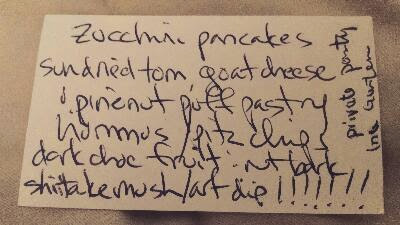 Zucchini pancakes
sundried tom, goat cheese
& pinenut puff pastry
hommus / pita chip
dark choc fruit nut bark
shiitake mush/art dip !!!!!!!
private party